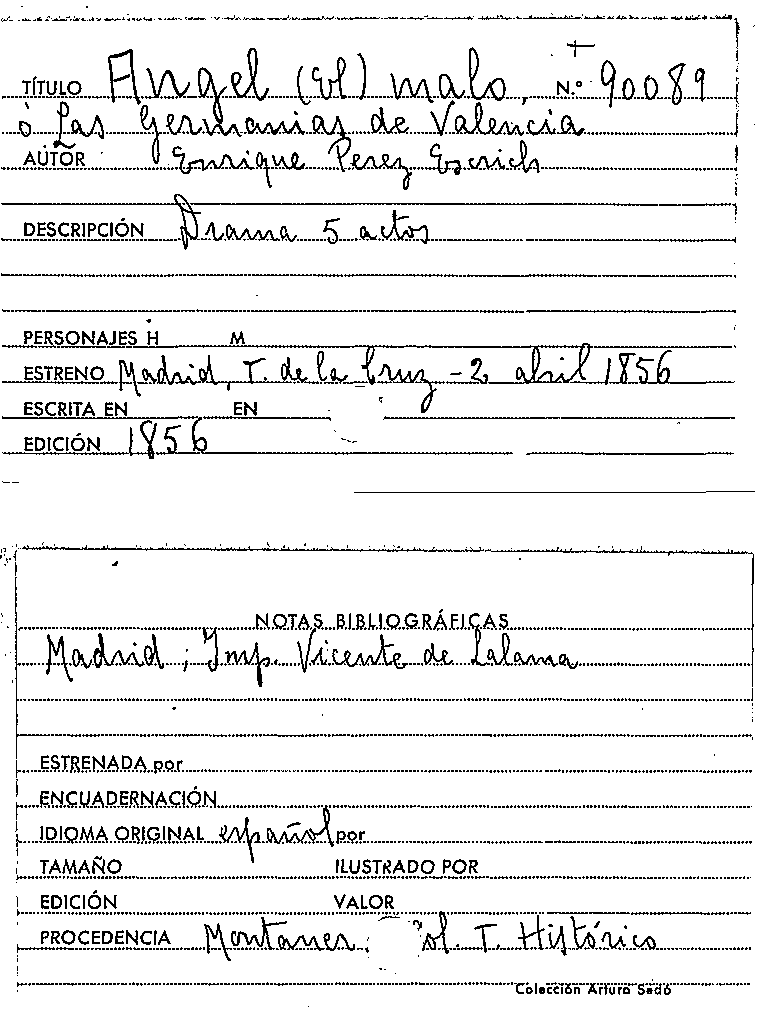 TÍTULO Angel (El) malo, N.º 90089
ó Las Germanias de Valencia
AUTOR Enrique Perez Escrich
DESCRIPCIÓN Drama 5 actos
PERSONAJES H M
ESTRENO Madrid, T. de la Cruz - 2 abril 1856
ESCRITA EN EN
EDICIÓN 1856
NOTAS BIBLIOGRÁFICAS
Madrid; Imp. Vicente de Lalama
ESTRENADA por
ENCUADERNACIÓN
IDIOMA ORIGINAL español por
TAMAÑO ILUSTRADO POR
EDICIÓN VALOR
PROCEDENCIA Montaner. Col. T. Histórico
Colección Arturo Sedó